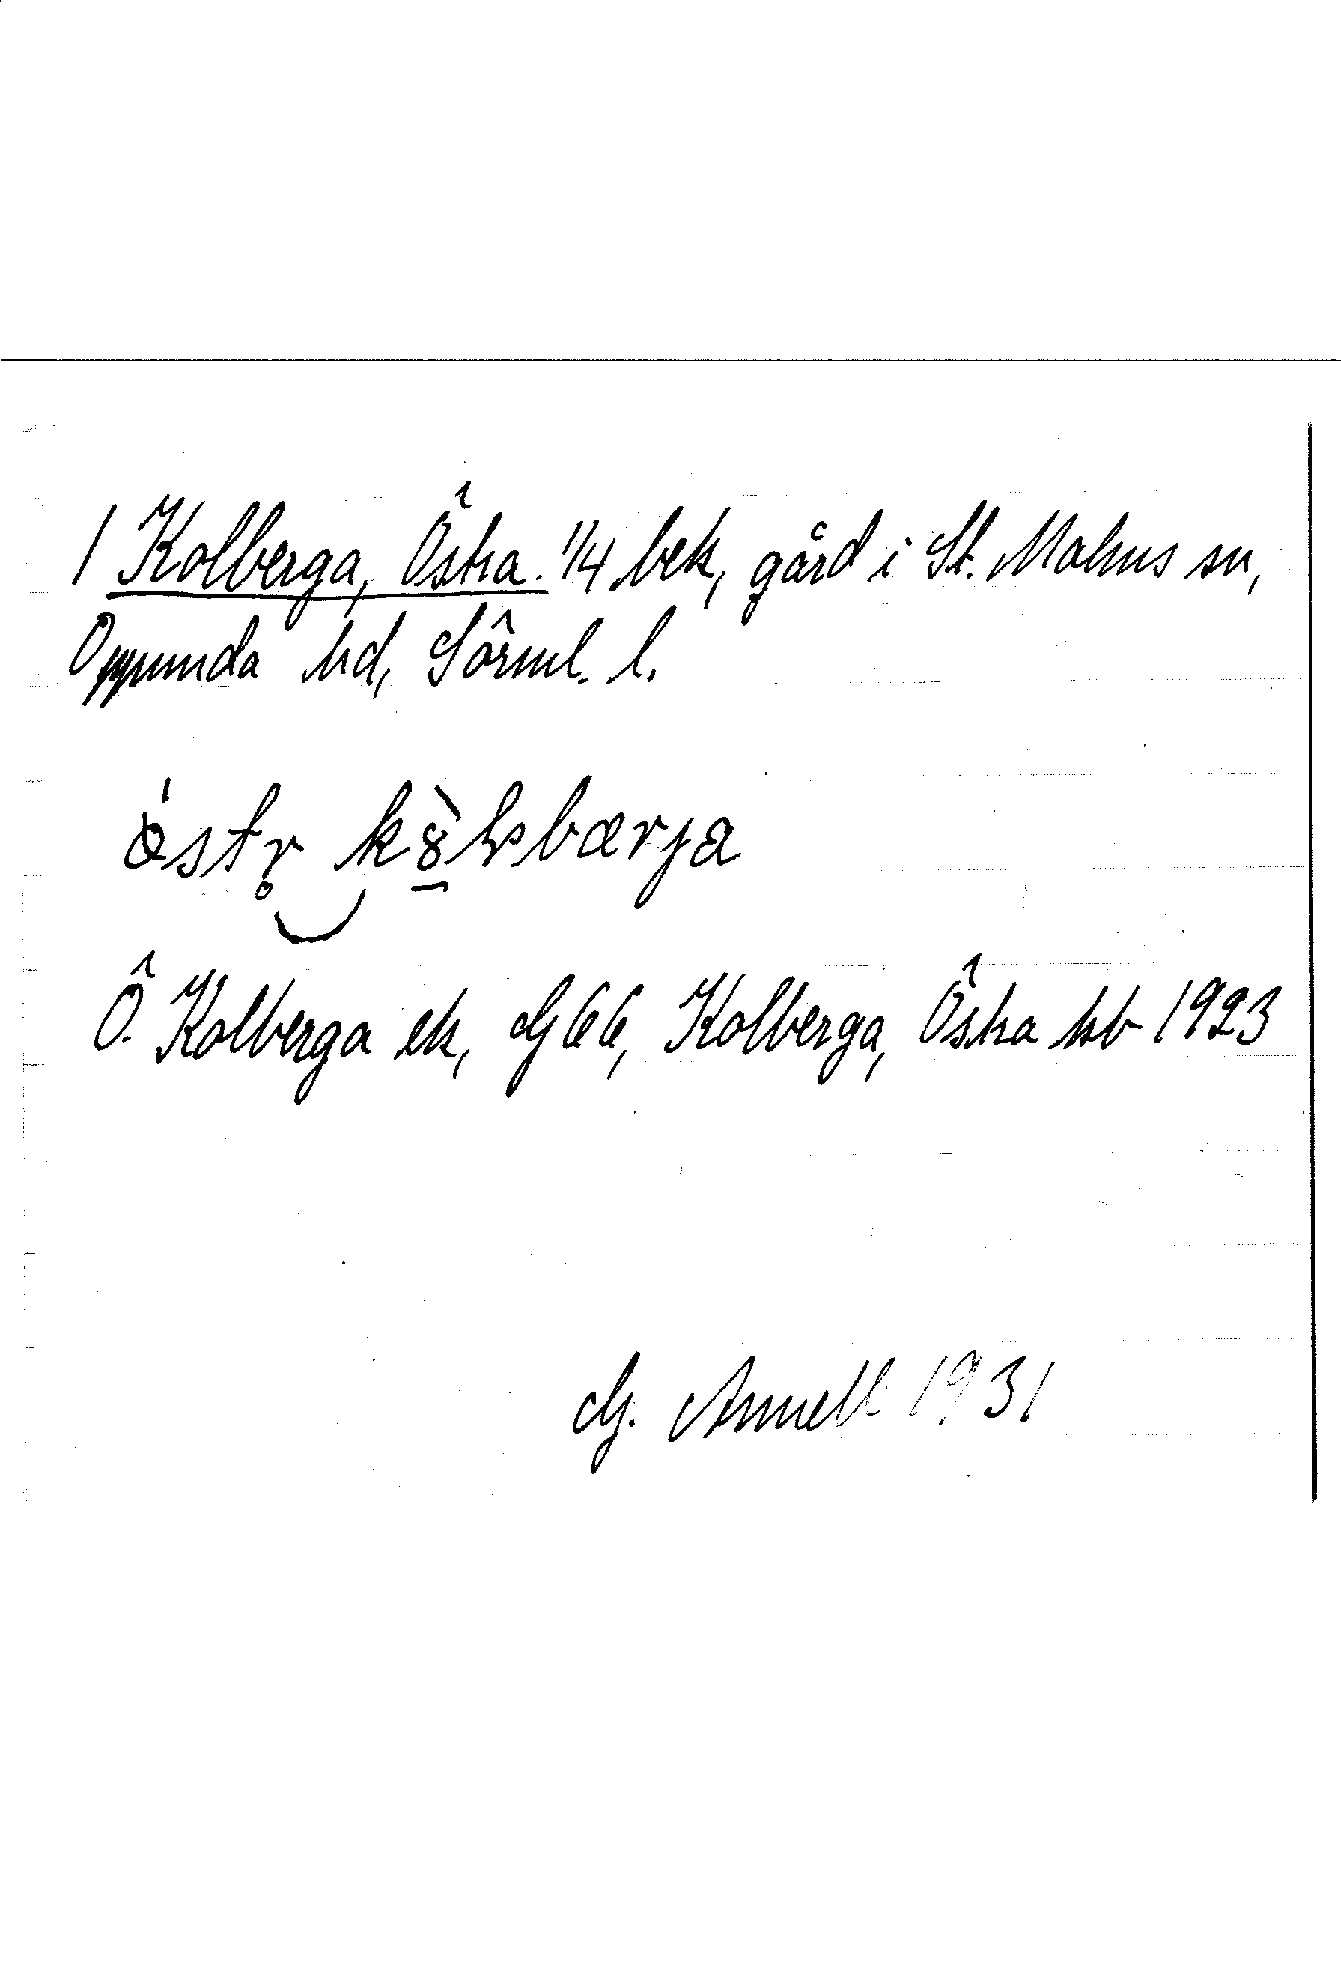 1 Kolberga, Östra. 1/4 bek, gård i St. Malms sn,
Oppunda hd, Sörml. l.
östr̥ k8̀lsbærja
Ö. Kolberga ek, G66, Kolberga, Östra hb 1923
G. Annell 1931